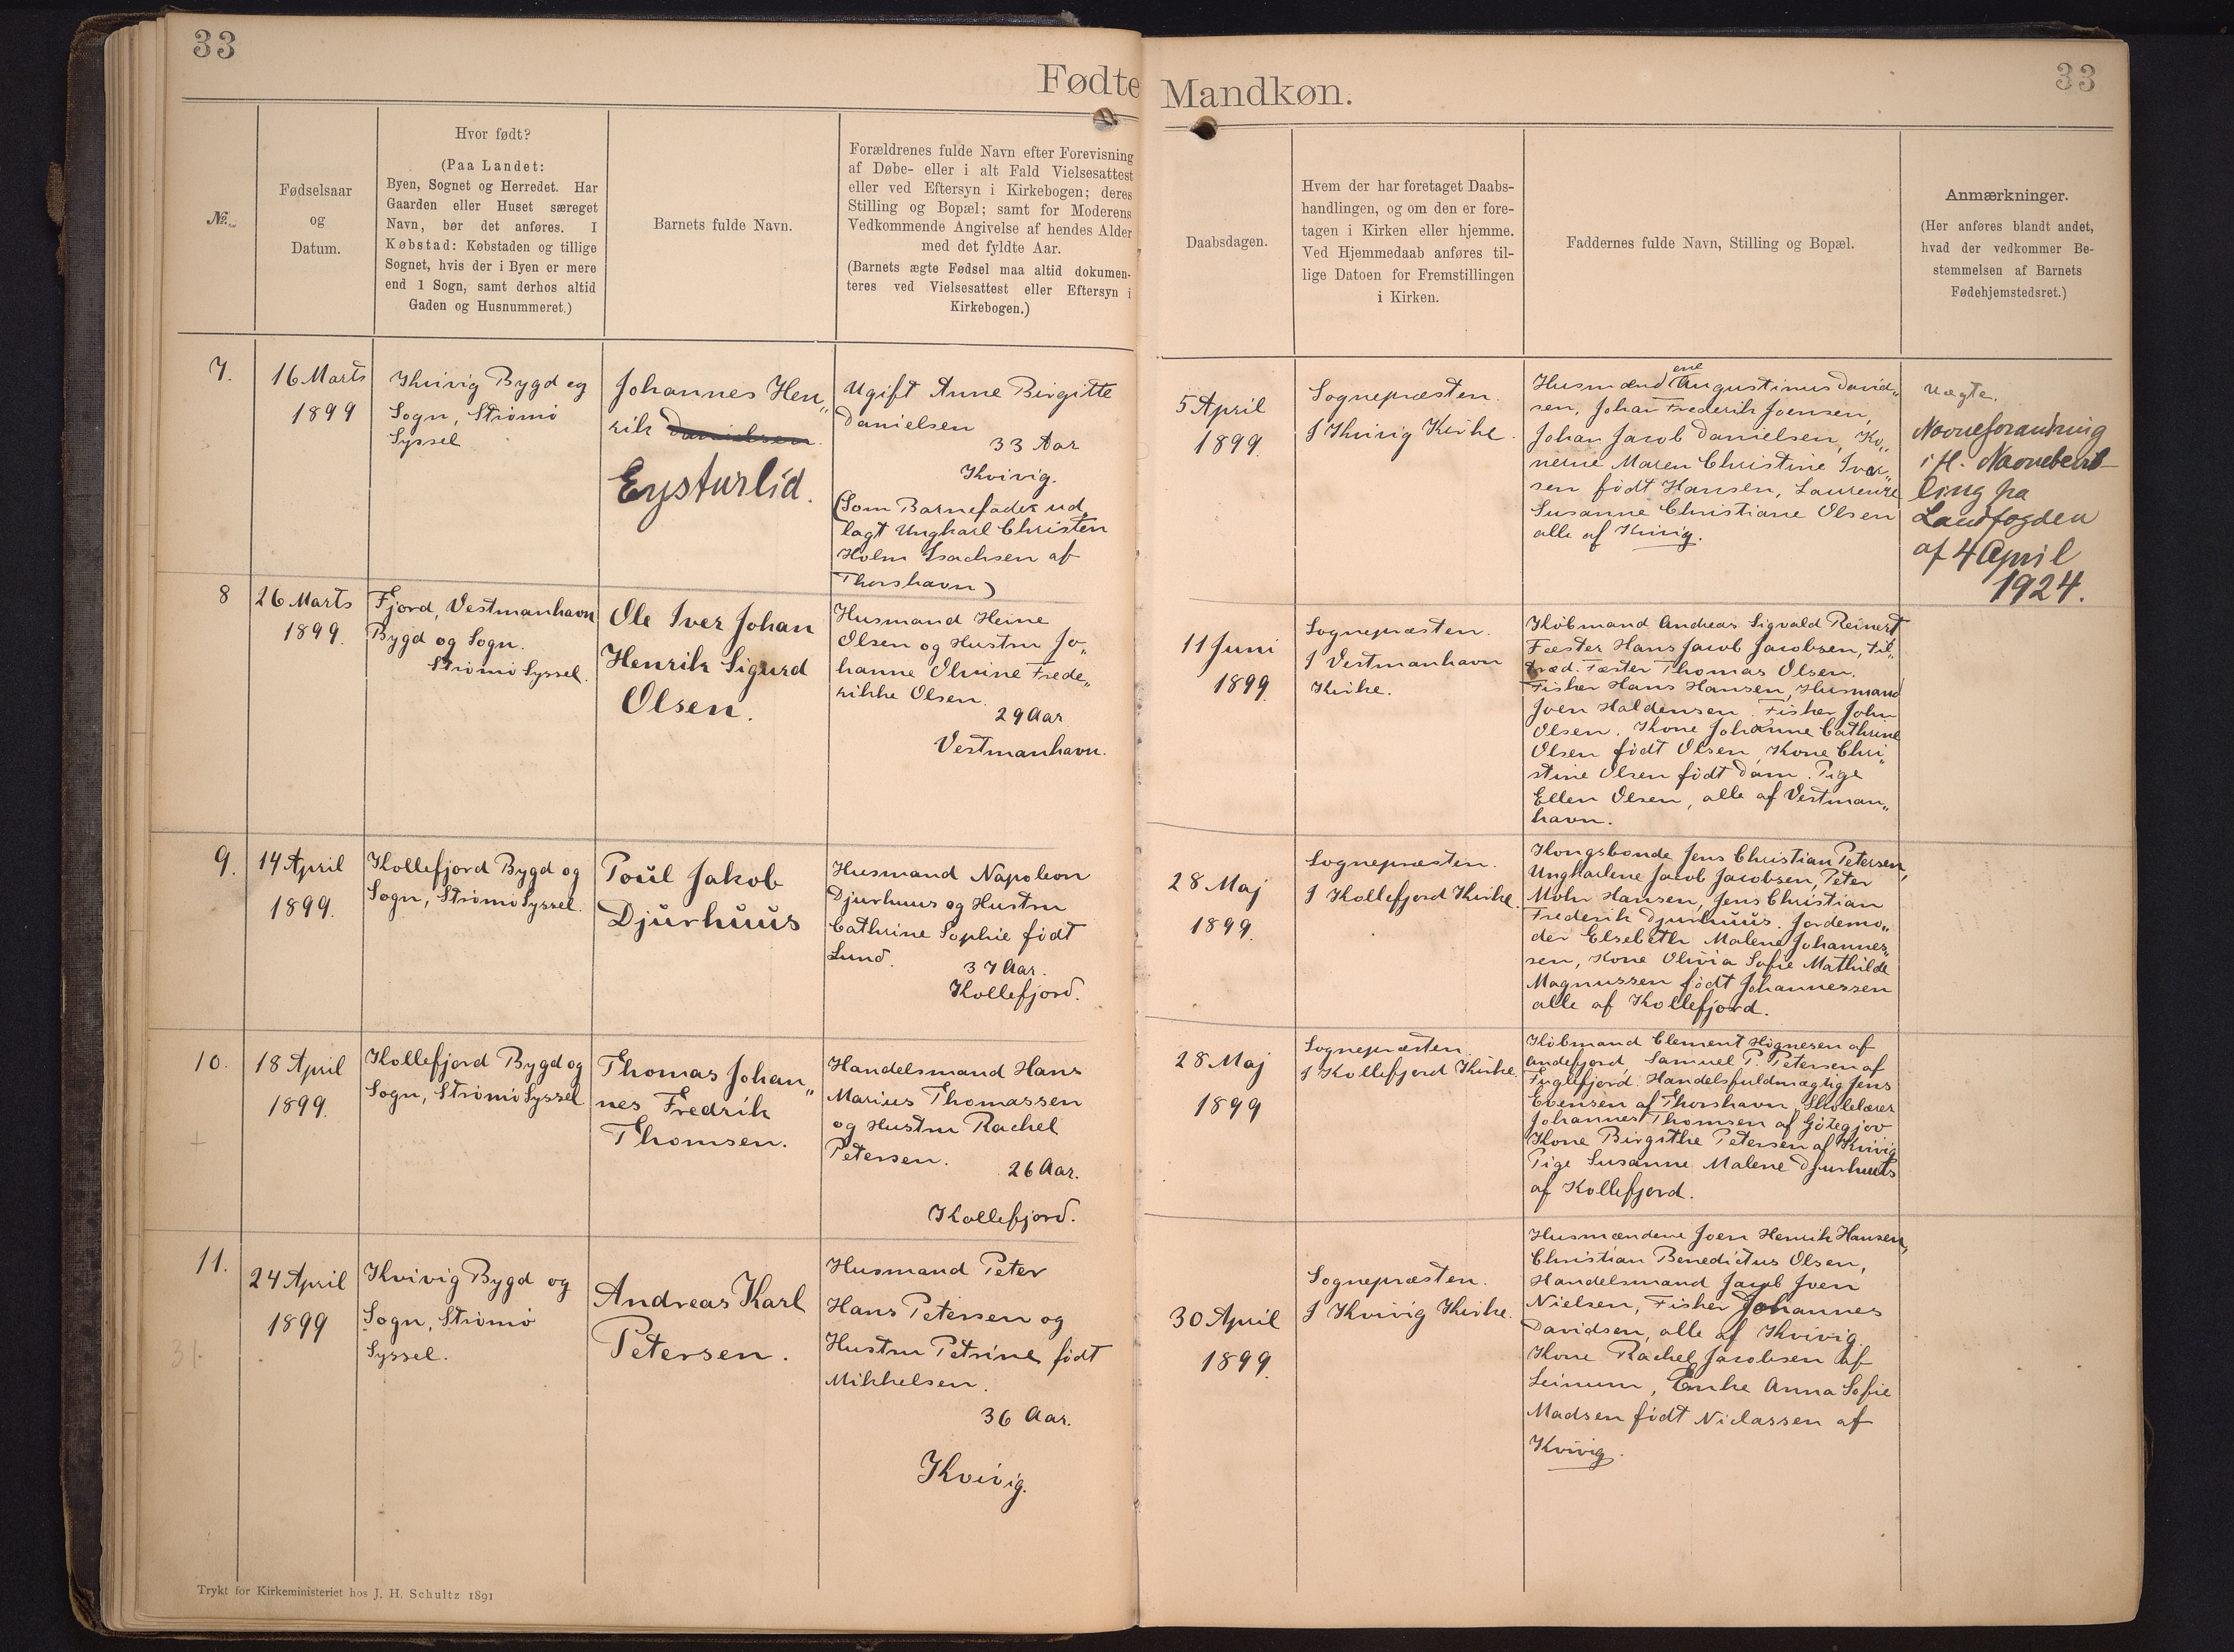 33
33
Fødte Mandkøn.
№
Fødselsaar
og
Datum.
Hvor født?
(Paa Landet:
Byen, Sognet og Herredet. Har
Gaarden eller Huset særeget
Navn, bør det anføres. I
Købstad: Købstaden og tillige
Sognet, hvis der i Byen er mere
end 1 Sogn, samt derhos altid
Gaden og Husnummeret.)
Barnets fulde Navn.
Forældrenes fulde Navn efter Forevisning
af Døbe- eller i alt Fald Vielsesattest
eller ved Eftersyn i Kirkebogen; deres
Stilling og Bopæl; samt for Moderens
Vedkommende Angivelse af hendes Alder
med det fyldte Aar.
(Barnets ægte Fødsel maa altid dokumen-
teres ved Vielsesattest eller Eftersyn i
Kirkebogen.)
Daabsdagen.
Hvem der har foretaget Daabs-
handlingen, og om den er fore-
tagen i Kirken eller hjemme.
Ved Hjemmedaab anføres til-
lige Datoen for Fremstillingen
i Kirken.
Faddernes fulde Navn, Stilling og Bopæl.
Anmærkninger.
(Her anføres blandt andet,
hvad der vedkommer Be-
stemmelsen af Barnets
Fødehjemstedsret.)
7.
16 Marts
1899
Kvivig Bygd og
Sogn, Strømø
Syssel
Johannes Hen„
rik Danielsen.
Eysturlid.
Ugift Anne Birgitte
Danielsen
33 Aar
Kvivig.
(Som Barnefader ud„
lagt Ungkarl Christen
Holm Isachsen af
Thorshavn)
5 April
1899.
Sognepræsten.
I Kvivig Kirke.
Husmændene Augustinus David„
sen, Johan Frederik Joensen,
Johan Jacob Danielsen, Ko„
nerne Maren Christine Iver„
sen født Hansen, Laurentze
Susanne Christiane Olsen
alle af Kvivig.
Uægte.
Navneforandring
i fl. Navnebevil-
ling fra
Landfogden
af 4 April
1924.
8
26 Marts
1899.
Fjord, Vestmanhavn
Bygd og Sogn.
Strømø Syssel.
Ole Iver Johan
Henrik Sigurd
Olsen.
Husmand Heine
Olsen og Hustru Jo„
hanne Olvine Frede„
rikke Olsen.
29 Aar
Vestmanhavn.
11 Juni
1899.
Sognepræsten.
I Vestmanhavn
Kirke.
Købmand Andreas Sigvald Reinert
Fæster Hans Jacob Jacobsen, til„
træd. Fæster Thomas Olsen.
Fisker Hans Hansen, Husmand
Joen Haldensen. Fisker John
Olsen. Kone Johanne Cathrine
Olsen født Olsen, Kone Chri„
stine Olsen født Dam. Pige
Ellen Olsen, alle af Vestman„
havn.
9.
14 April
1899.
Kollefjord Bygd og
Sogn, Strømø Syssel.
Poul Jakob
Djurhuus
Husmand Napoleon
Djurhuus og Hustru
Cathrine Sophie født
Lund.
37 Aar.
Kollefjord.
28 Maj
1899.
Sognepræsten.
I Kollefjord Kirke.
Kongsbonde Jens Christian Petersen,
Ungkarlene Jacob Jacobsen, Peter
Mohr Hansen, Jens Christian
Frederik Djurhuus. Jordemo„
der Elsebeth Malene Johannes„
sen, Kone Olivia Sofie Mathilde
Magnussen født Johannessen
alle af Kollefjord.
10.
18 April
1899.
Kollefjord Bygd og
Sogn, Strømø Syssel
Thomas Johan„
nes Fredrik
Thomsen.
Handelsmand Hans
Marius Thomassen
og Hustru Rachel
Petersen.
26 Aar.
Kollefjord.
28 Maj
1899
Sognepræsten.
I Kollefjord Kirke.
Købmand Clement Høgnesen af
Andefjord, Samuel P. Petersen af
Fuglefjord. Handelsfuldmægtig Jens
Evensen af Thorshavn, Skolelærer
Johannes Thomsen af Gøtegjov
Kone Birgithe Petersen af Kvivig
Pige Susanne Malene Djurhuus
af Kollefjord.
11.
24 April
1899
31
Kvivig Bygd og
Sogn, Strømø
Syssel.
Andreas Karl
Petersen.
Husmand Peter
Hans Petersen og
Hustru Petrine født
Mikkelsen.
36 Aar.
Kvivig.
30 April
1899.
Sognepræsten.
I Kvivig Kirke.
Husmændene Joen Henrik Hansen,
Christian Benedictus Olsen,
Handelsmand Jacob Joen
Nielsen, Fisker Johannes
Davidsen, alle af Kvivig.
Kone Rachel Jacobsen af
Leinum, Enke Anna Sofie
Madsen født Niclassen af
Kvivig.
Trykt for Kirkeministeriet hos J. H. Schultz 1891